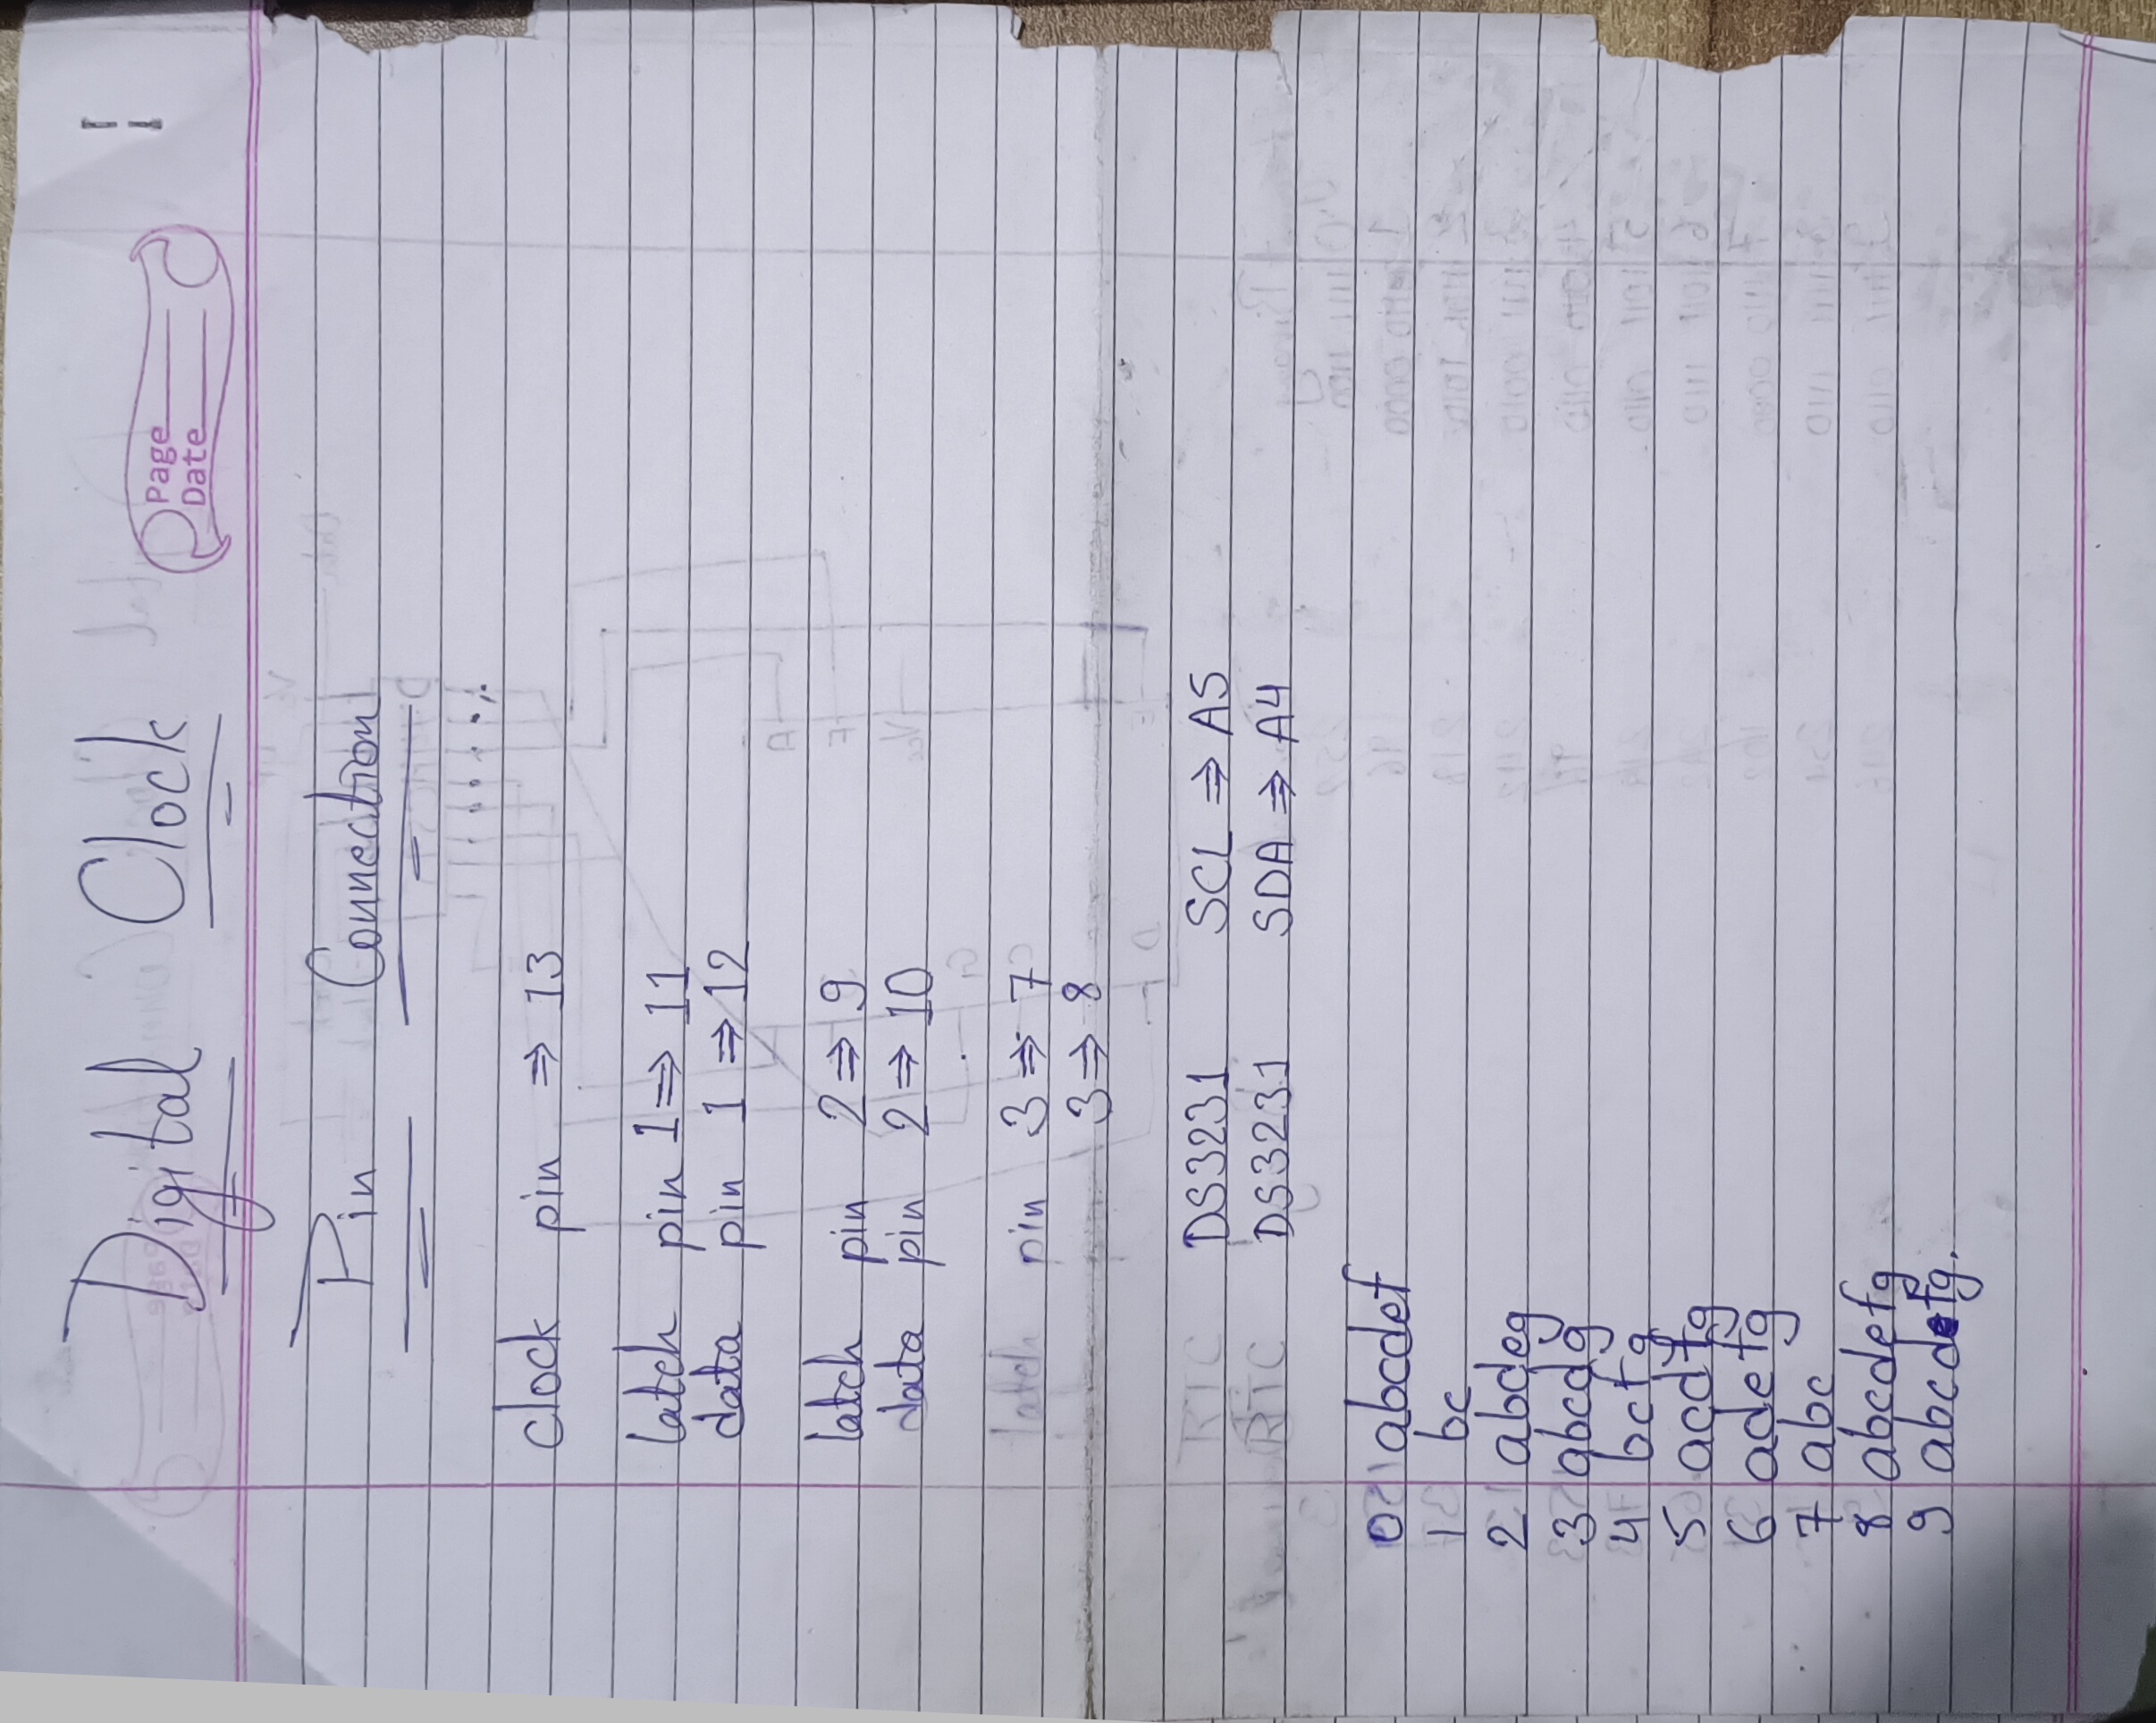 Digital Clock
Page
Date
Pin Connection
clock pin ⇒ 13
latch pin 1 ⇒ 11
data pin 1 ⇒ 12
latch pin 2 ⇒ 9
data pin 2 ⇒ 10
latch pin 3 ⇒ 7
3 ⇒ 8
RTC DS3231 SCL ⇒ A5
RTC DS3231 SDA ⇒ A4
0 abcdef
1 bc
2 abdeg
3 abcdg
4 bcfg
5 acdfg
6 adefg
7 abc
8 abcdefg
9 abcdefg.